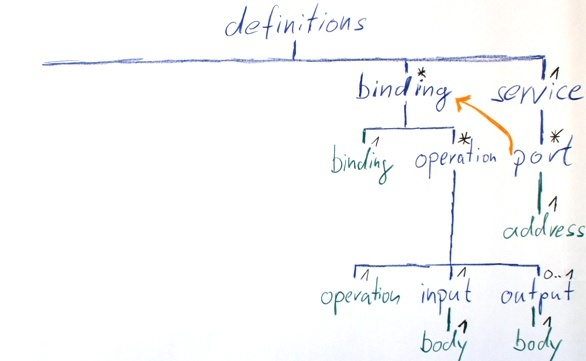 definitions
* 1
binding service
1 * *
binding operation port
1
address
1 1 0..1
operation input output
1 1
body body